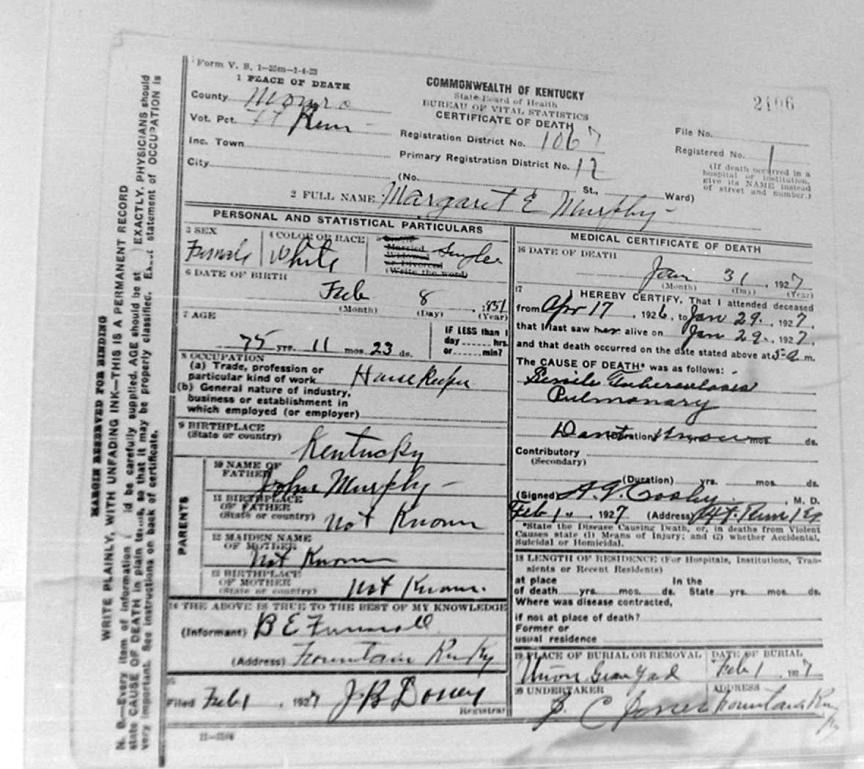 Form V. S. 1-25m-1-4-23
1 PLACE OF DEATH
County Monro
Vot. Pct. Run
Inc. Town
City
COMMONWEALTH OF KENTUCKY
State Board of Health
BUREAU OF VITAL STATISTICS
CERTIFICATE OF DEATH
Registration District No. 1067
Primary Registration District No. 12
(No. St., Ward)
2106
File No.
Registered No. 1
(If death occurred in a
hospital or institution,
give its NAME instead
of street and number.)
2 FULL NAME Margaret E Murphy
PERSONAL AND STATISTICAL PARTICULARS
3 SEX
Female
4 COLOR OR RACE
White
5 Single
Married
Widowed
or Divorced
(Write the word)
Single
6 DATE OF BIRTH
Feb 8 1851
(Month) (Day) (Year)
7 AGE
75 yrs. 11 mos. 23 ds.
IF LESS than 1
day hrs.
or min?
8 OCCUPATION
(a) Trade, profession or
particular kind of work House Keeper
(b) General nature of industry,
business or establishment in
which employed (or employer)
9 BIRTHPLACE
(State or country) Kentucky
PARENTS
10 NAME OF
FATHER John Murphy
11 BIRTHPLACE
OF FATHER
(State or country) not Known
12 MAIDEN NAME
OF MOTHER
not Known
13 BIRTHPLACE
OF MOTHER
(State or country) not Known
14 THE ABOVE IS TRUE TO THE BEST OF MY KNOWLEDGE
(Informant) B E
(Address) Fountain Run Ky
15
Filed Feb 1, 1927 J B Dossey
Registrar
11-3184
MEDICAL CERTIFICATE OF DEATH
16 DATE OF DEATH
Jan 31, 1927
(Month) (Day) (Year)
17 I HEREBY CERTIFY, That I attended deceased
from Apr 17, 1926, to Jan 29., 1927,
that I last saw her alive on Jan 29., 1927,
and that death occurred on the date stated above at 5-a m.
The CAUSE OF DEATH* was as follows:
Senile Tuberculosis
Pulmonary
(Duration) Dont Know mos. ds.
Contributory
(Secondary)
(Duration) yrs. mos. ds.
(Signed) M. D.
Feb 1., 1927 (Address) Run Ky
*State the Disease Causing Death, or, in deaths from Violent
Causes state (1) Means of Injury; and (2) whether Accidental,
Suicidal or Homicidal.
18 LENGTH OF RESIDENCE (For Hospitals, Institutions, Tran-
sients or Recent Residents)
at place In the
of death yrs. mos. ds. State yrs. mos. ds.
Where was disease contracted,
if not at place of death?
Former or
usual residence
19 PLACE OF BURIAL OR REMOVAL
Union Grave Yad
DATE OF BURIAL
Feb 1, 1927
20 UNDERTAKER
J. C Jones
ADDRESS
Fountain Run
Ky
MARGIN RESERVED FOR BINDING
WRITE PLAINLY, WITH UNFADING INK—THIS IS A PERMANENT RECORD
N. B.—Every item of information should be carefully supplied. AGE should be stated EXACTLY. PHYSICIANS should
state CAUSE OF DEATH in plain terms, so that it may be properly classified. Exact statement of OCCUPATION is
very important. See instructions on back of certificate.